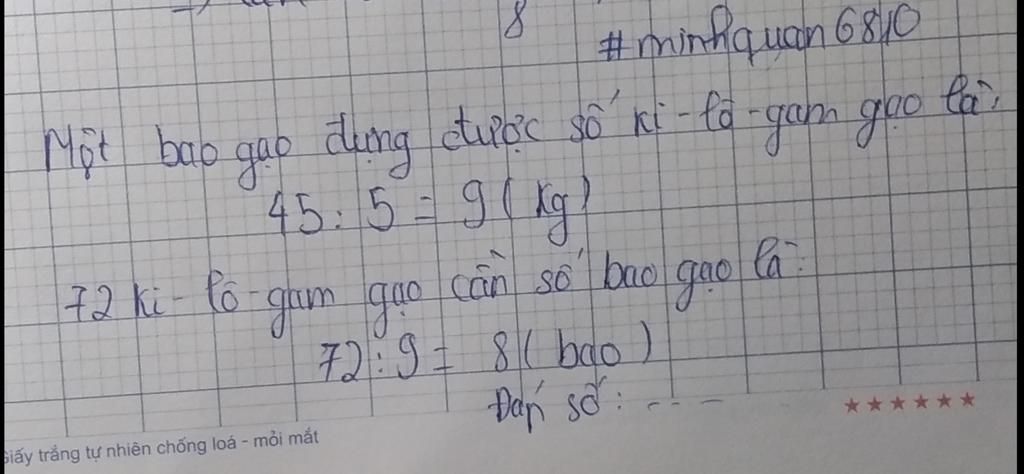 8
#minhquan6810
Một bao gạo đựng được số ki-lô-gam gạo là:
45 : 5 = 9 ( kg )
72 ki-lô-gam gạo cần số bao gạo là:
72 : 9 = 8 ( bao )
Đáp số : - - -
Giấy trắng tự nhiên chống loá - mỏi mắt